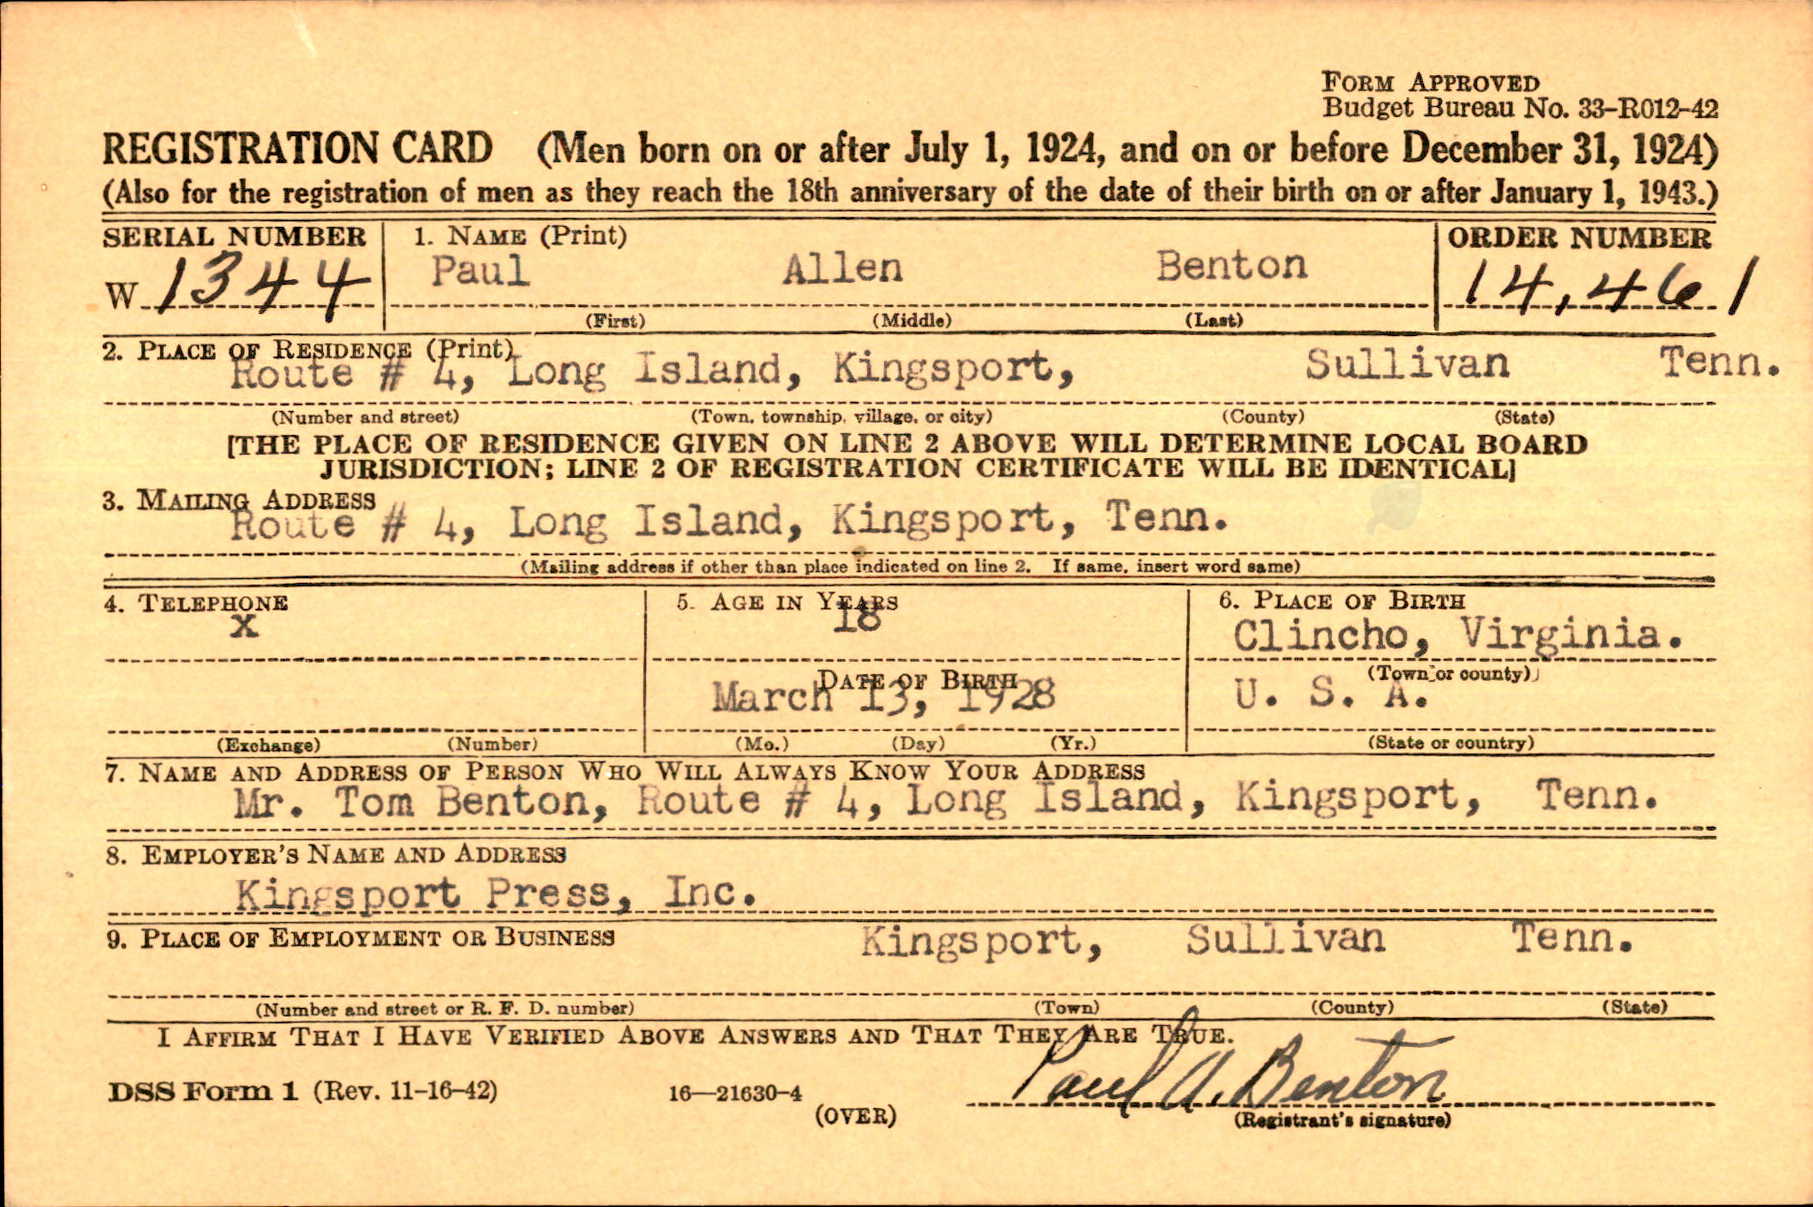 FORM APPROVED
Budget Bureau No. 33-R012-42
REGISTRATION CARD (Men born on or after July 1, 1924, and on or before December 31, 1924)
(Also for the registration of men as they reach the 18th anniversary of the date of their birth on or after January 1, 1943.)
SERIAL NUMBER 1. NAME (Print) ORDER NUMBER
W 1344 Paul Allen Benton 14,461
(First) (Middle) (Last)
2. PLACE OF RESIDENCE (Print)
Route # 4, Long Island, Kingsport, Sullivan Tenn.
(Number and street) (Town, township, village, or city) (County) (State)
[THE PLACE OF RESIDENCE GIVEN ON LINE 2 ABOVE WILL DETERMINE LOCAL BOARD
JURISDICTION; LINE 2 OF REGISTRATION CERTIFICATE WILL BE IDENTICAL]
3. MAILING ADDRESS
Route # 4, Long Island, Kingsport, Tenn.
(Mailing address if other than place indicated on line 2. If same, insert word same)
4. TELEPHONE 5. AGE IN YEARS 6. PLACE OF BIRTH
X 18 Clincho, Virginia.
DATE OF BIRTH (Town or county)
March 13, 1928 U. S. A.
(Exchange) (Number) (Mo.) (Day) (Yr.) (State or country)
7. NAME AND ADDRESS OF PERSON WHO WILL ALWAYS KNOW YOUR ADDRESS
Mr. Tom Benton, Route # 4, Long Island, Kingsport, Tenn.
8. EMPLOYER'S NAME AND ADDRESS
Kingsport Press, Inc.
9. PLACE OF EMPLOYMENT OR BUSINESS Kingsport, Sullivan Tenn.
(Number and street or R. F. D. number) (Town) (County) (State)
I AFFIRM THAT I HAVE VERIFIED ABOVE ANSWERS AND THAT THEY ARE TRUE.
DSS Form 1 (Rev. 11-16-42) 16—21630-4 Paul A. Benton
(OVER) (Registrant's signature)